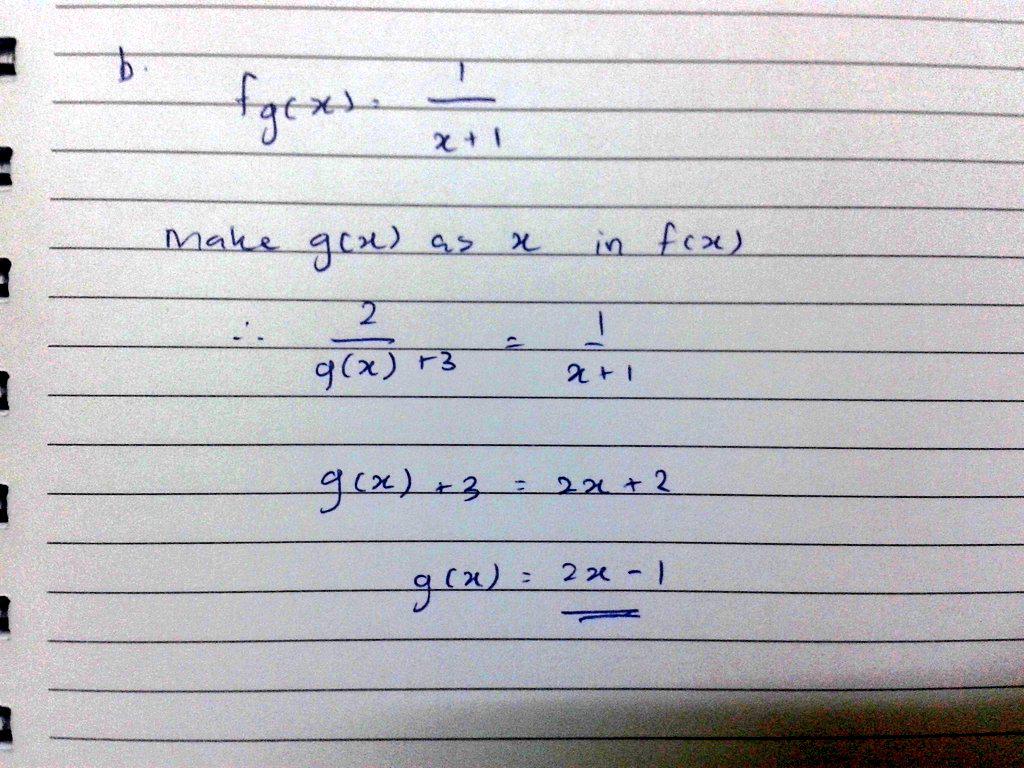 b.
fg(x) = 1/(x+1)
Make g(x) as x in f(x)
∴ 2/(g(x)+3) = 1/(x+1)
g(x) + 3 = 2x + 2
g(x) = 2x - 1